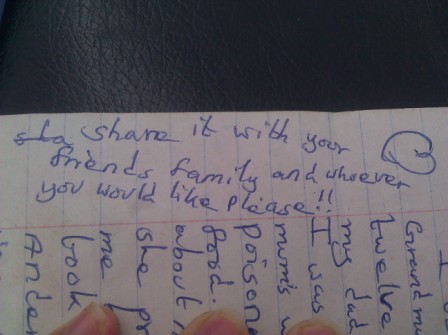 sha share it with your
friends family and whoever
you would like please!!
Grandmu
twelve
my dad
I was
mum's w
poisone
food.
about
she pr
me
book
Anden